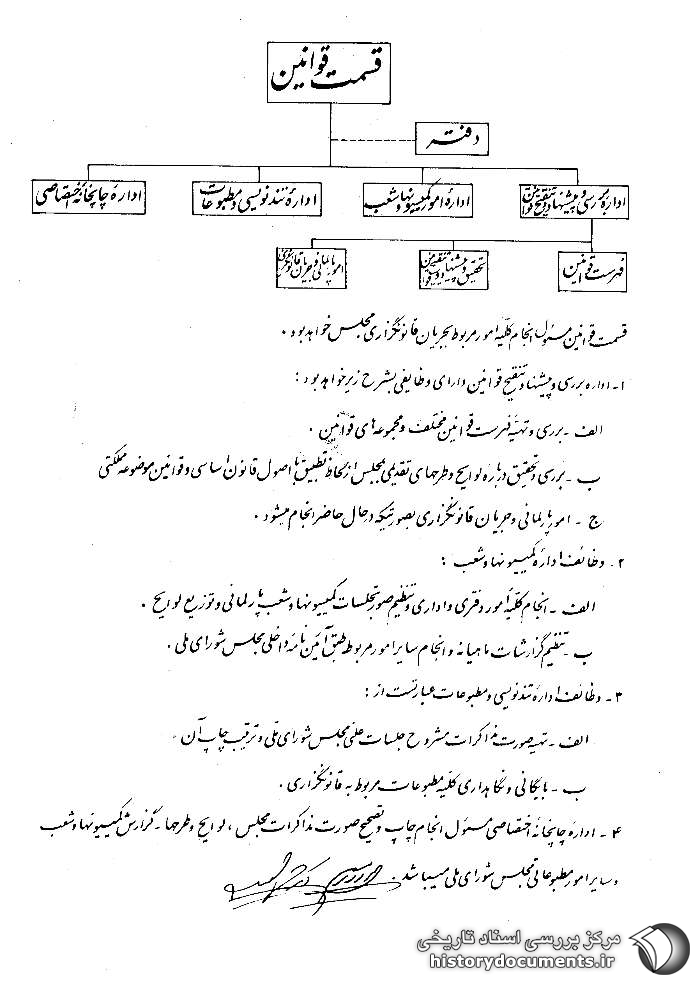 قسمت قوانین
دفتر
اداره بررسی و پیشنهاد و تنقیح قوانین
اداره امور کمیسیونها و شعب
اداره تندنویسی و مطبوعات
اداره چاپخانه اختصاصی
فهرست قوانین
تحقیق و پیشنهاد و تنقیح قوانین
امور پارلمانی و جریان قانونگزاری
قسمت قوانین مسئول انجام کلیه امور مربوط بجریان قانونگزاری مجلس خواهد بود .
۱ - اداره بررسی و پیشنهاد و تنقیح قوانین دارای وظایفی بشرح زیر خواهد بود :
الف - بررسی و تهیه فهرست قوانین مختلف و مجموعه های قوانین .
ب - بررسی و تحقیق درباره لوایح و طرحهای تقدیمی بمجلس از لحاظ تطبیق با اصول قانون اساسی و قوانین موضوعه مملکتی
ج - امور پارلمانی و جریان قانونگزاری بصورتیکه در حال حاضر انجام میشود .
۲ - وظائف اداره کمیسیونها و شعب :
الف - انجام کلیه امور دفتری و اداری و تنظیم صورتجلسات کمیسیونها و شعب پارلمانی و توزیع لوایح .
ب - تنظیم گزارشات ماهیانه و انجام سایر امور مربوطه طبق آئین نامه داخلی مجلس شورای ملی .
۳ - وظائف اداره تندنویسی و مطبوعات عبارتست از :
الف - تهیه صورت مذاکرات مشروح جلسات علنی مجلس شورای ملی و ترتیب چاپ آن -
ب - بایگانی و نگاهداری کلیه مطبوعات مربوط به قانونگزاری .
۴ - اداره چاپخانه اختصاصی مسئول انجام چاپ و تصحیح صورت مذاکرات مجلس ، لوایح و طرحها - گزارش کمیسیونها و شعب
و سایر امور مطبوعاتی مجلس شورای ملی میباشد .
مرکز بررسی اسناد تاریخی
historydocuments.ir